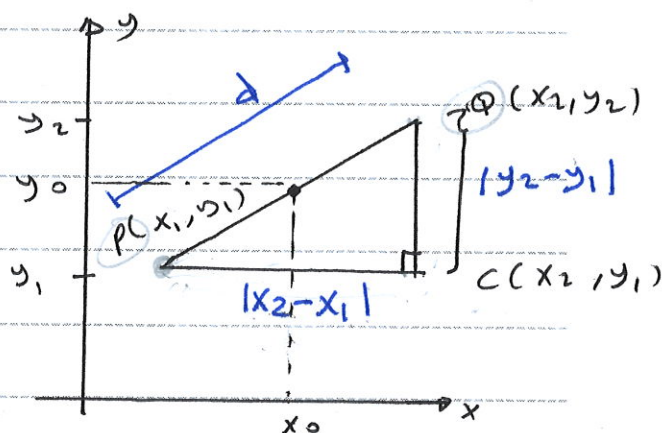 y
d
y₂
Q(x₂,y₂)
y₀
|y₂-y₁|
P(x₁,y₁)
y₁
C(x₂,y₁)
|x₂-x₁|
x
x₀